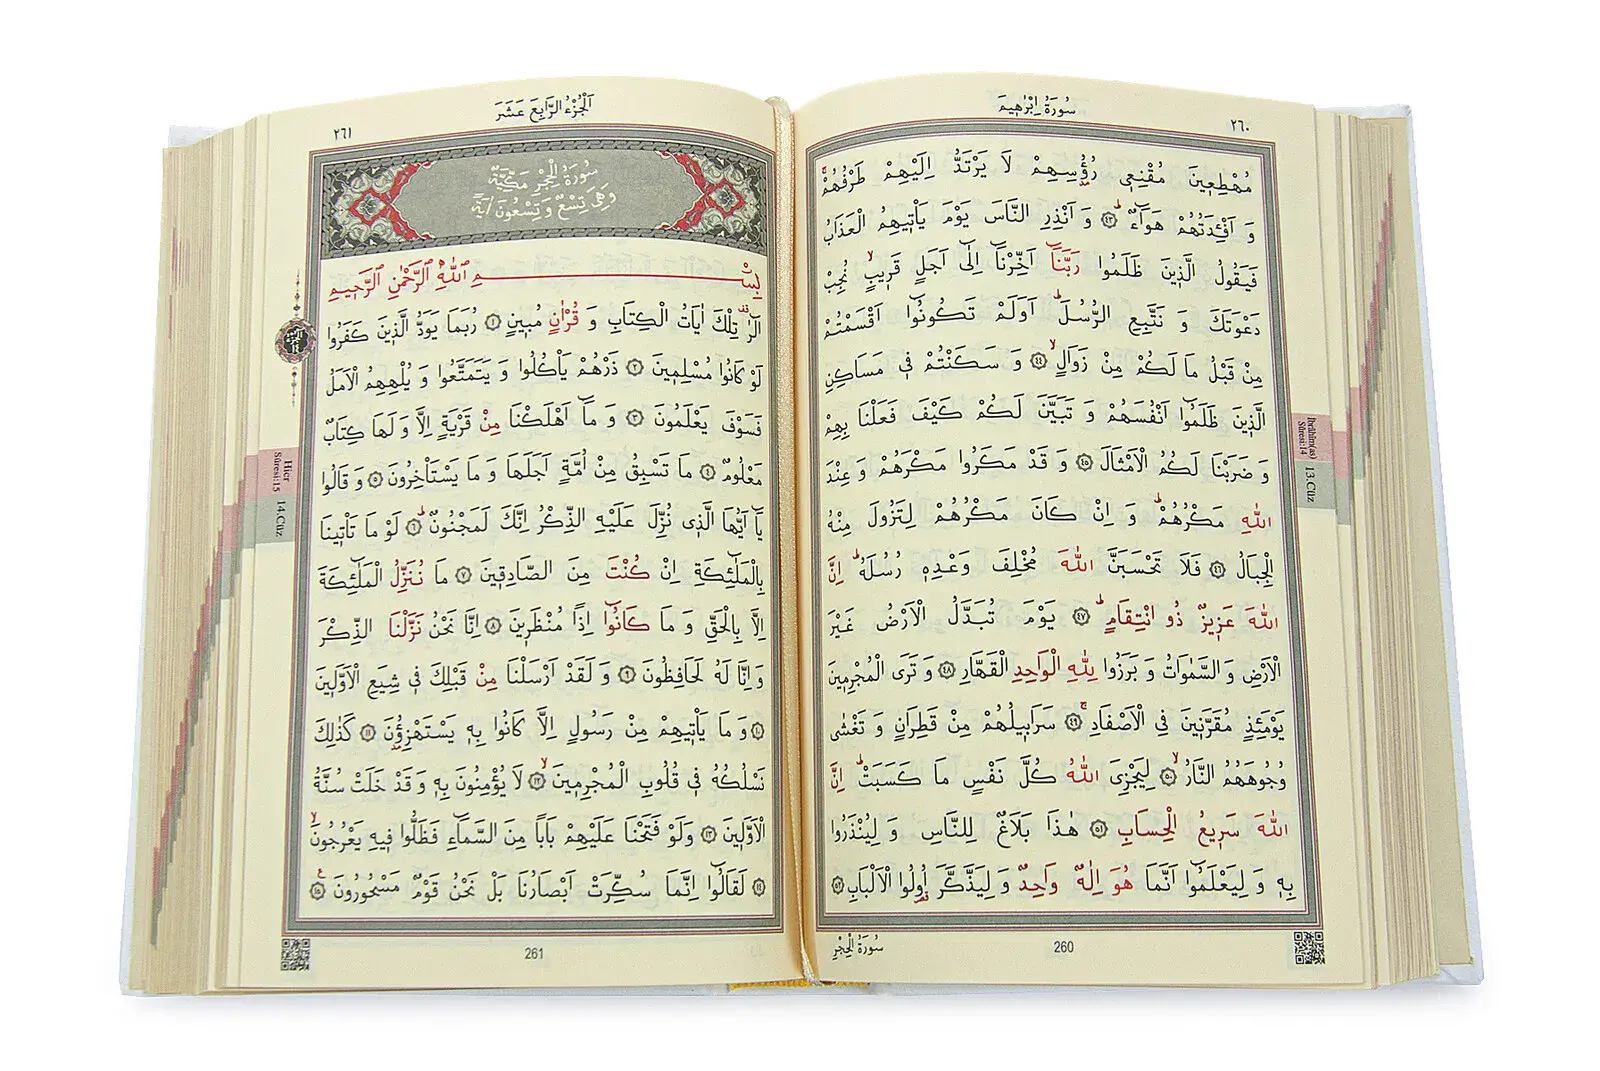 سُورَةُ اِبْرٰهِيمَ
٢٦٠
مُهْطِعٖينَ مُقْنِعٖى رُؤُسِهِمْ لَا يَرْتَدُّ اِلَيْهِمْ طَرْفُهُمْۚ
وَ اَفْـِٔدَتُهُمْ هَوَٓاءٌؕ ﴿٤٣﴾ وَ اَنْذِرِ النَّاسَ يَوْمَ يَاْتٖيهِمُ الْعَذَابُ
فَيَقُولُ الَّذٖينَ ظَلَمُوا رَبَّنَٓا اَخِّرْنَٓا اِلٰٓى اَجَلٍ قَرٖيبٍۙ نُجِبْ
دَعْوَتَكَ وَ نَتَّبِعِ الرُّسُلَؕ اَوَلَمْ تَكُونُٓوا اَقْسَمْتُمْ
مِنْ قَبْلُ مَا لَكُمْ مِنْ زَوَالٍۙ ﴿٤٤﴾ وَ سَكَنْتُمْ فٖى مَسَاكِنِ
الَّذٖينَ ظَلَمُٓوا اَنْفُسَهُمْ وَ تَبَيَّنَ لَكُمْ كَيْفَ فَعَلْنَا بِهِمْ
وَ ضَرَبْنَا لَكُمُ الْاَمْثَالَ ﴿٤٥﴾ وَ قَدْ مَكَرُوا مَكْرَهُمْ وَ عِنْدَ
اللّٰهِ مَكْرُهُمْؕ وَ اِنْ كَانَ مَكْرُهُمْ لِتَزُولَ مِنْهُ
الْجِبَالُ ﴿٤٦﴾ فَلَا تَحْسَبَنَّ اللّٰهَ مُخْلِفَ وَعْدِهٖ رُسُلَهُؕ اِنَّ
اللّٰهَ عَزٖيزٌ ذُو انْتِقَامٍؕ ﴿٤٧﴾ يَوْمَ تُبَدَّلُ الْاَرْضُ غَيْرَ
الْاَرْضِ وَ السَّمٰوَاتُ وَ بَرَزُوا لِلّٰهِ الْوَاحِدِ الْقَهَّارِ ﴿٤٨﴾ وَ تَرَى الْمُجْرِمٖينَ
يَوْمَئِذٍ مُقَرَّنٖينَ فِى الْاَصْفَادِۚ ﴿٤٩﴾ سَرَابٖيلُهُمْ مِنْ قَطِرَانٍ وَ تَغْشٰى
وُجُوهَهُمُ النَّارُۙ ﴿٥٠﴾ لِيَجْزِىَ اللّٰهُ كُلَّ نَفْسٍ مَا كَسَبَتْؕ اِنَّ
اللّٰهَ سَرٖيعُ الْحِسَابِ ﴿٥١﴾ هٰذَا بَلَاغٌ لِلنَّاسِ وَ لِيُنْذَرُوا
بِهٖ وَ لِيَعْلَمُٓوا اَنَّمَا هُوَ اِلٰهٌ وَاحِدٌ وَ لِيَذَّكَّرَ اُولُوا الْاَلْبَابِ ﴿٥٢﴾
260
سُورَةُ الْحِجْرِ
İbrahim(as)
Sûresi:14
13.Cüz
اَلْجُزْءُ الرَّابِعَ عَشَرَ
٢٦١
سُورَةُ الْحِجْرِ مَكِّيَّةٌ
وَهِىَ تِسْعٌ وَ تِسْعُونَ اٰيَةً
بِسْمِ اللّٰهِ الرَّحْمٰنِ الرَّحٖيمِ
الٓرٰ تِلْكَ اٰيَاتُ الْكِتَابِ وَ قُرْاٰنٍ مُبٖينٍ ﴿١﴾ رُبَمَا يَوَدُّ الَّذٖينَ كَفَرُوا
لَوْ كَانُوا مُسْلِمٖينَ ﴿٢﴾ ذَرْهُمْ يَاْكُلُوا وَ يَتَمَتَّعُوا وَ يُلْهِهِمُ الْاَمَلُ
فَسَوْفَ يَعْلَمُونَ ﴿٣﴾ وَ مَٓا اَهْلَكْنَا مِنْ قَرْيَةٍ اِلَّا وَ لَهَا كِتَابٌ
مَعْلُومٌ ﴿٤﴾ مَا تَسْبِقُ مِنْ اُمَّةٍ اَجَلَهَا وَ مَا يَسْتَاْخِرُونَ ﴿٥﴾ وَ قَالُوا
يَٓا اَيُّهَا الَّذٖى نُزِّلَ عَلَيْهِ الذِّكْرُ اِنَّكَ لَمَجْنُونٌؕ ﴿٦﴾ لَوْ مَا تَاْتٖينَا
بِالْمَلٰٓئِكَةِ اِنْ كُنْتَ مِنَ الصَّادِقٖينَ ﴿٧﴾ مَا نُنَزِّلُ الْمَلٰٓئِكَةَ
اِلَّا بِالْحَقِّ وَ مَا كَانُٓوا اِذًا مُنْظَرٖينَ ﴿٨﴾ اِنَّا نَحْنُ نَزَّلْنَا الذِّكْرَ
وَ اِنَّا لَهُ لَحَافِظُونَ ﴿٩﴾ وَ لَقَدْ اَرْسَلْنَا مِنْ قَبْلِكَ فٖى شِيَعِ الْاَوَّلٖينَ
﴿١٠﴾ وَ مَا يَاْتٖيهِمْ مِنْ رَسُولٍ اِلَّا كَانُوا بِهٖ يَسْتَهْزِؤُنَ ﴿١١﴾ كَذٰلِكَ
نَسْلُكُهُ فٖى قُلُوبِ الْمُجْرِمٖينَۙ ﴿١٢﴾ لَا يُؤْمِنُونَ بِهٖ وَ قَدْ خَلَتْ سُنَّةُ
الْاَوَّلٖينَ ﴿١٣﴾ وَلَوْ فَتَحْنَا عَلَيْهِمْ بَابًا مِنَ السَّمَٓاءِ فَظَلُّوا فٖيهِ يَعْرُجُونَۙ
﴿١٤﴾ لَقَالُٓوا اِنَّمَا سُكِّرَتْ اَبْصَارُنَا بَلْ نَحْنُ قَوْمٌ مَسْحُورُونَ ﴿١٥﴾
261
Hicr
Sûresi:15
14.Cüz